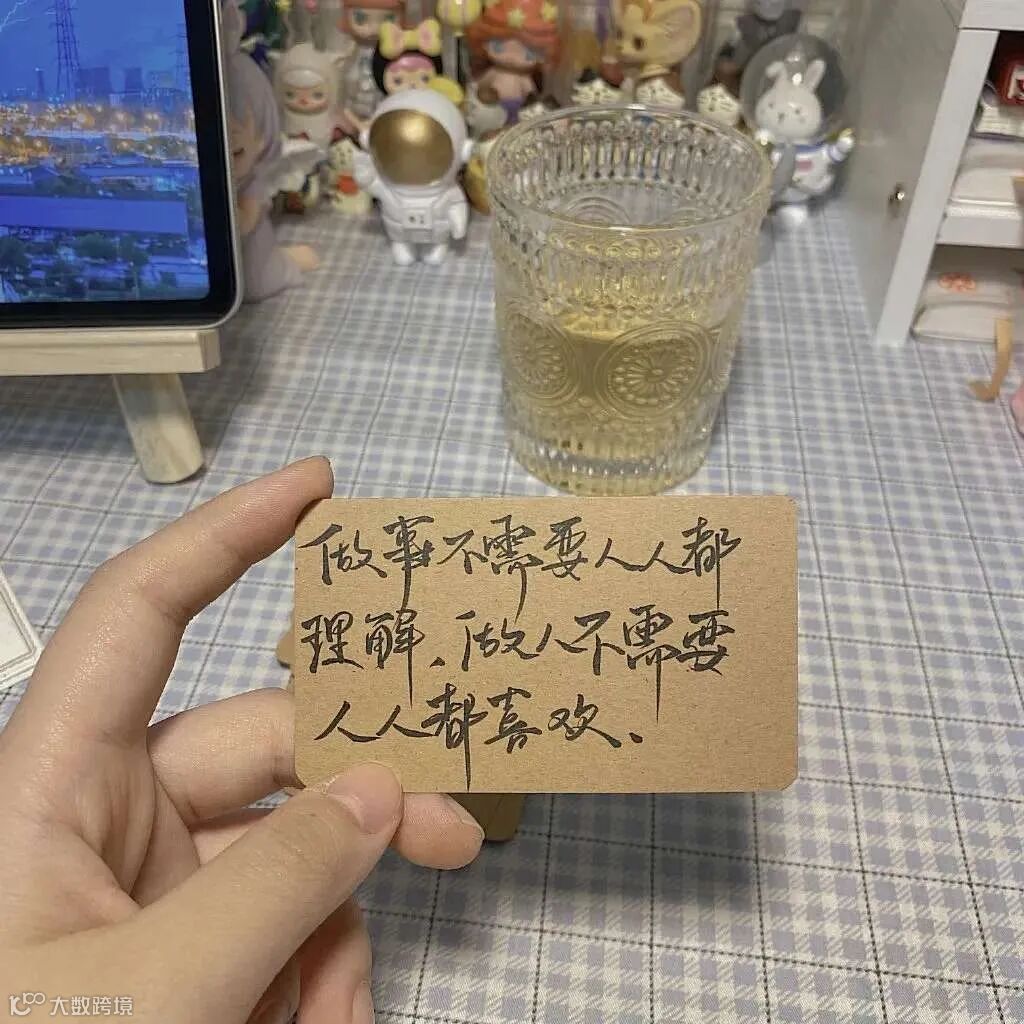 做事不需要人人都
理解、做人不需要
人人都喜欢、
大数跨境